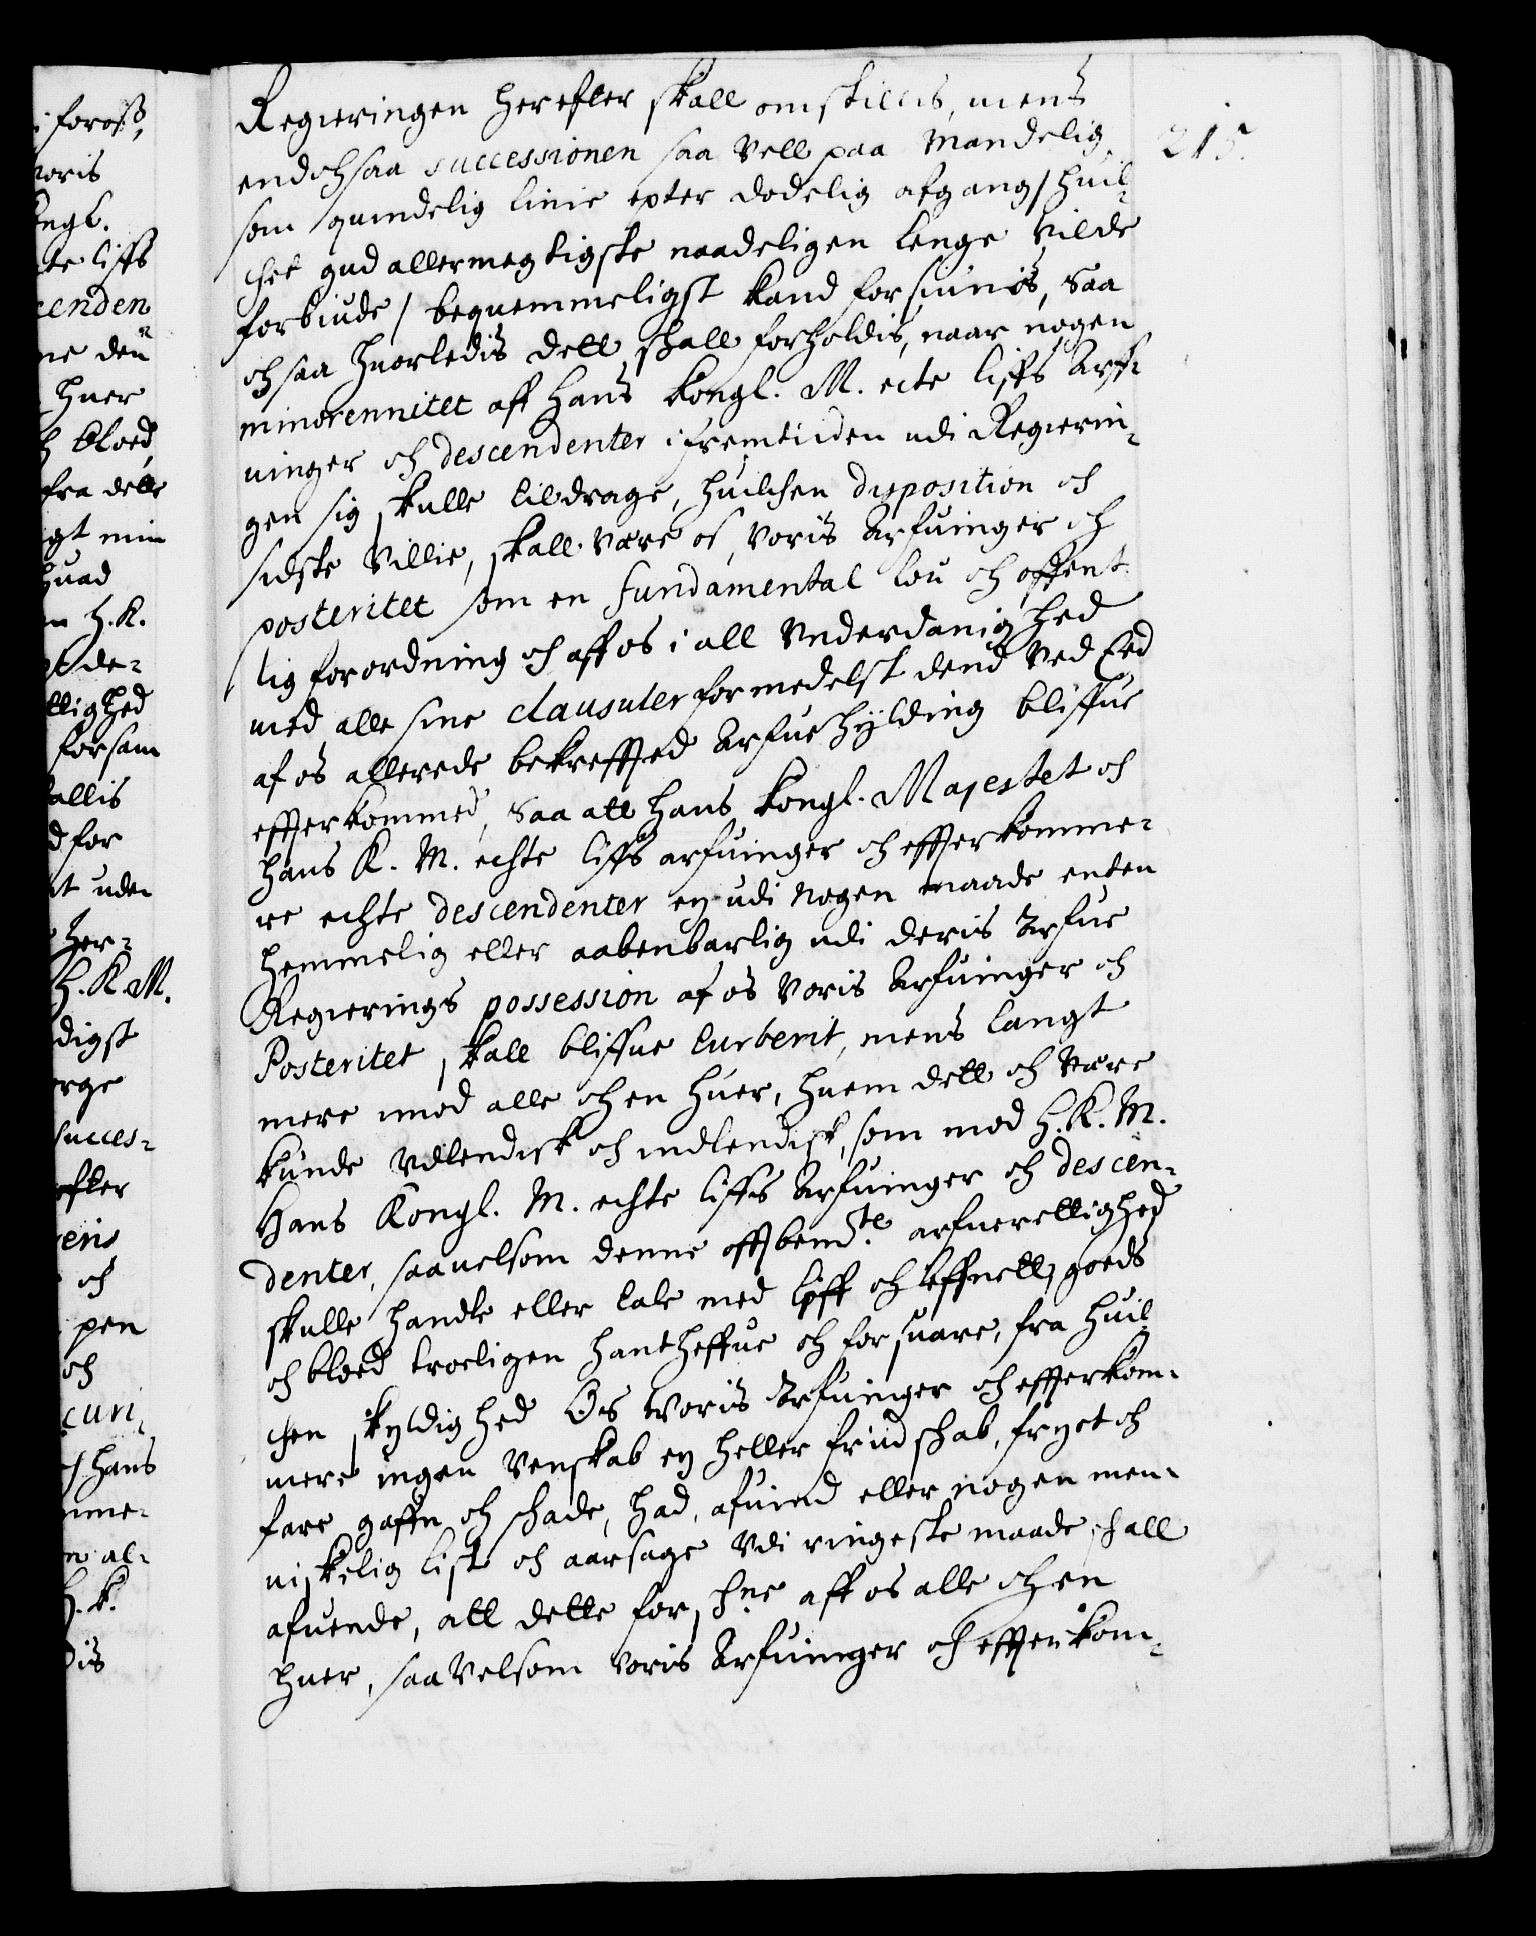 215.
Regieringen herefter skall omskillis, mens
endochsaa successionen saa vell paa Mandelig
som quindelig linie epter dødelig afgang / huil¬
chet gud allermegtigste naadeligen lenge vilde
forbiude / bequemmeligst kand forsiunis, saa
ochsaa huorledis dett schall forholdis, naar nogen
minorennitet aff Hans Kongl. M. ecte liffs Arff¬
uinger och descendenter i fremtiiden udi Regierin¬
gen sig skulle tildrage, huilchen disposition och
sidste Villie, skall være os, voris Arfuinger och
posteritet som en fundamental lou och offent
lig forordning och aff os i all Vnderdanighed
med alle sine clausuler formedelst dend ved Eed
af os allerede bekreffted Arfuehylding bliffue
effterkommed, Saa att Hans Kongl. Majestet och
Hans K. M. echte liffs arfuinger och effterkomme¬
re echte descendenter ey udi nogen maade enten
hemmelig eller aabenbarlig udi deris Arfue
Regierings possession af os voris Arfuinger och
Posteritet skall bliffue turberit, mens langt
mere imod alle och en huer, huem dett och være
kunde Vdlendisk och indlendisk, som mod H. K. M.
Hans Kongl. M. echte liffs Arfuinger och descen¬
denter, saauelsom denne offtbemte arfuerettighed
skulle handle eller tale med liff och leffnett, goeds
och bloed troeligen hantheffue och forsuare, fra huil
chen skyldighed Os Woris Arfuinger och effterkom¬
mere ingen Venskab ey heller frindschab, fryct och
fare gaffn och schade, had, afuind eller nogen men¬
niskelig list och aarsage Vdi ringeste maade schall
afuende, att dette forschne aff os alle och en
huer, saavelsom voris Arfuinger och effterkom¬